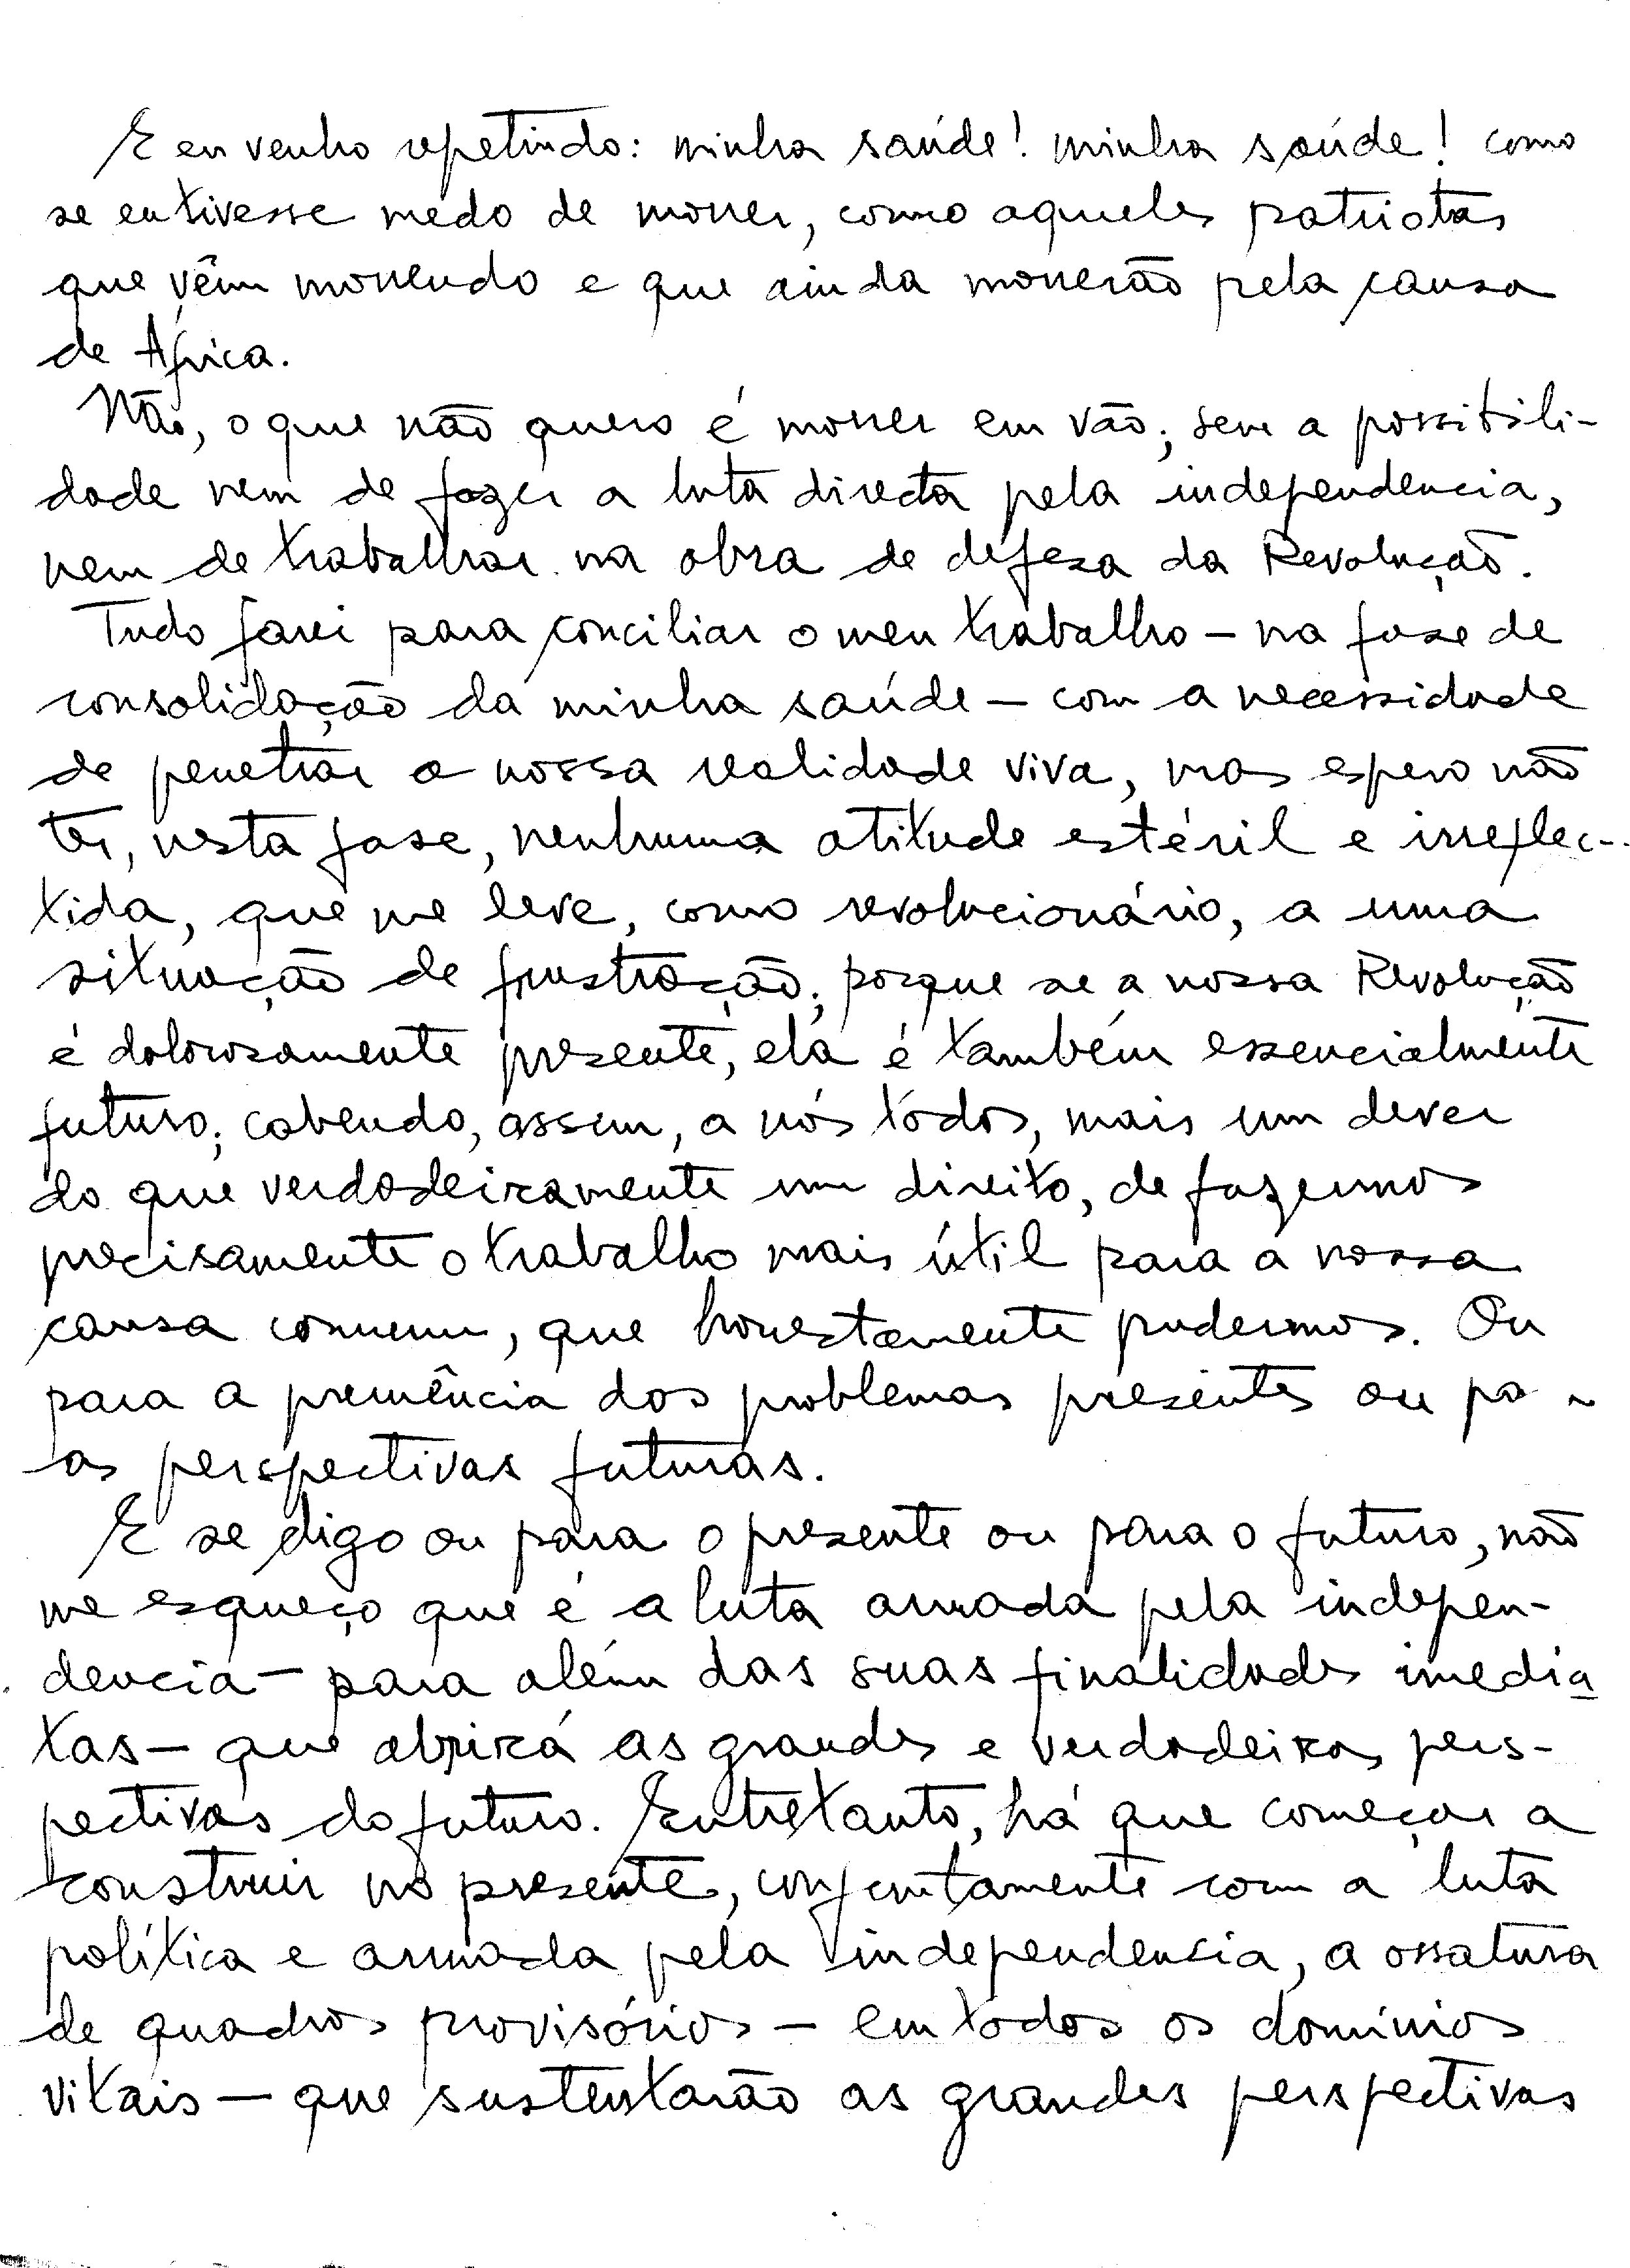 E eu venho repetindo: minha saúde! minha saúde! como
se eu tivesse medo de morrer, como aqueles patriotas
que vêm morrendo e que ainda morrerão pela causa
de África.
Não, o que não quero é morrer em vão; sem a possibili-
dade nem de fazer a luta directa pela independencia,
nem de trabalhar na obra de defesa da Revolução.
Tudo farei para conciliar o meu trabalho - na fase de
consolidação da minha saúde - com a necessidade
de penetrar a nossa realidade viva, mas espero não
ter, nesta fase, nenhuma atitude estéril e irreflec-
tida, que me leve, como revolucionário, a uma
situação de frustração; porque se a nossa Revolução
é dolorosamente presente, ela é também essencialmente
futuro; cabendo, assim, a nós todos, mais um dever
do que verdadeiramente um direito, de fazermos
precisamente o trabalho mais útil para a nossa
causa comum, que honestamente pudermos. Ou
para a premência dos problemas presentes ou pa
as perspectivas futuras.
E se digo ou para o presente ou para o futuro, não
me esqueço que é a luta armada pela indepen-
dencia - para além das suas finalidades imedia
tas - que abrirá as grandes e verdadeiras pers-
pectivas do futuro. Entretanto, há que começar a
construir no presente, conjuntamente com a luta
política e armada pela independencia, a ossatura
de quadros provisórios - em todos os domínios
vitais - que sustentarão as grandes perspectivas